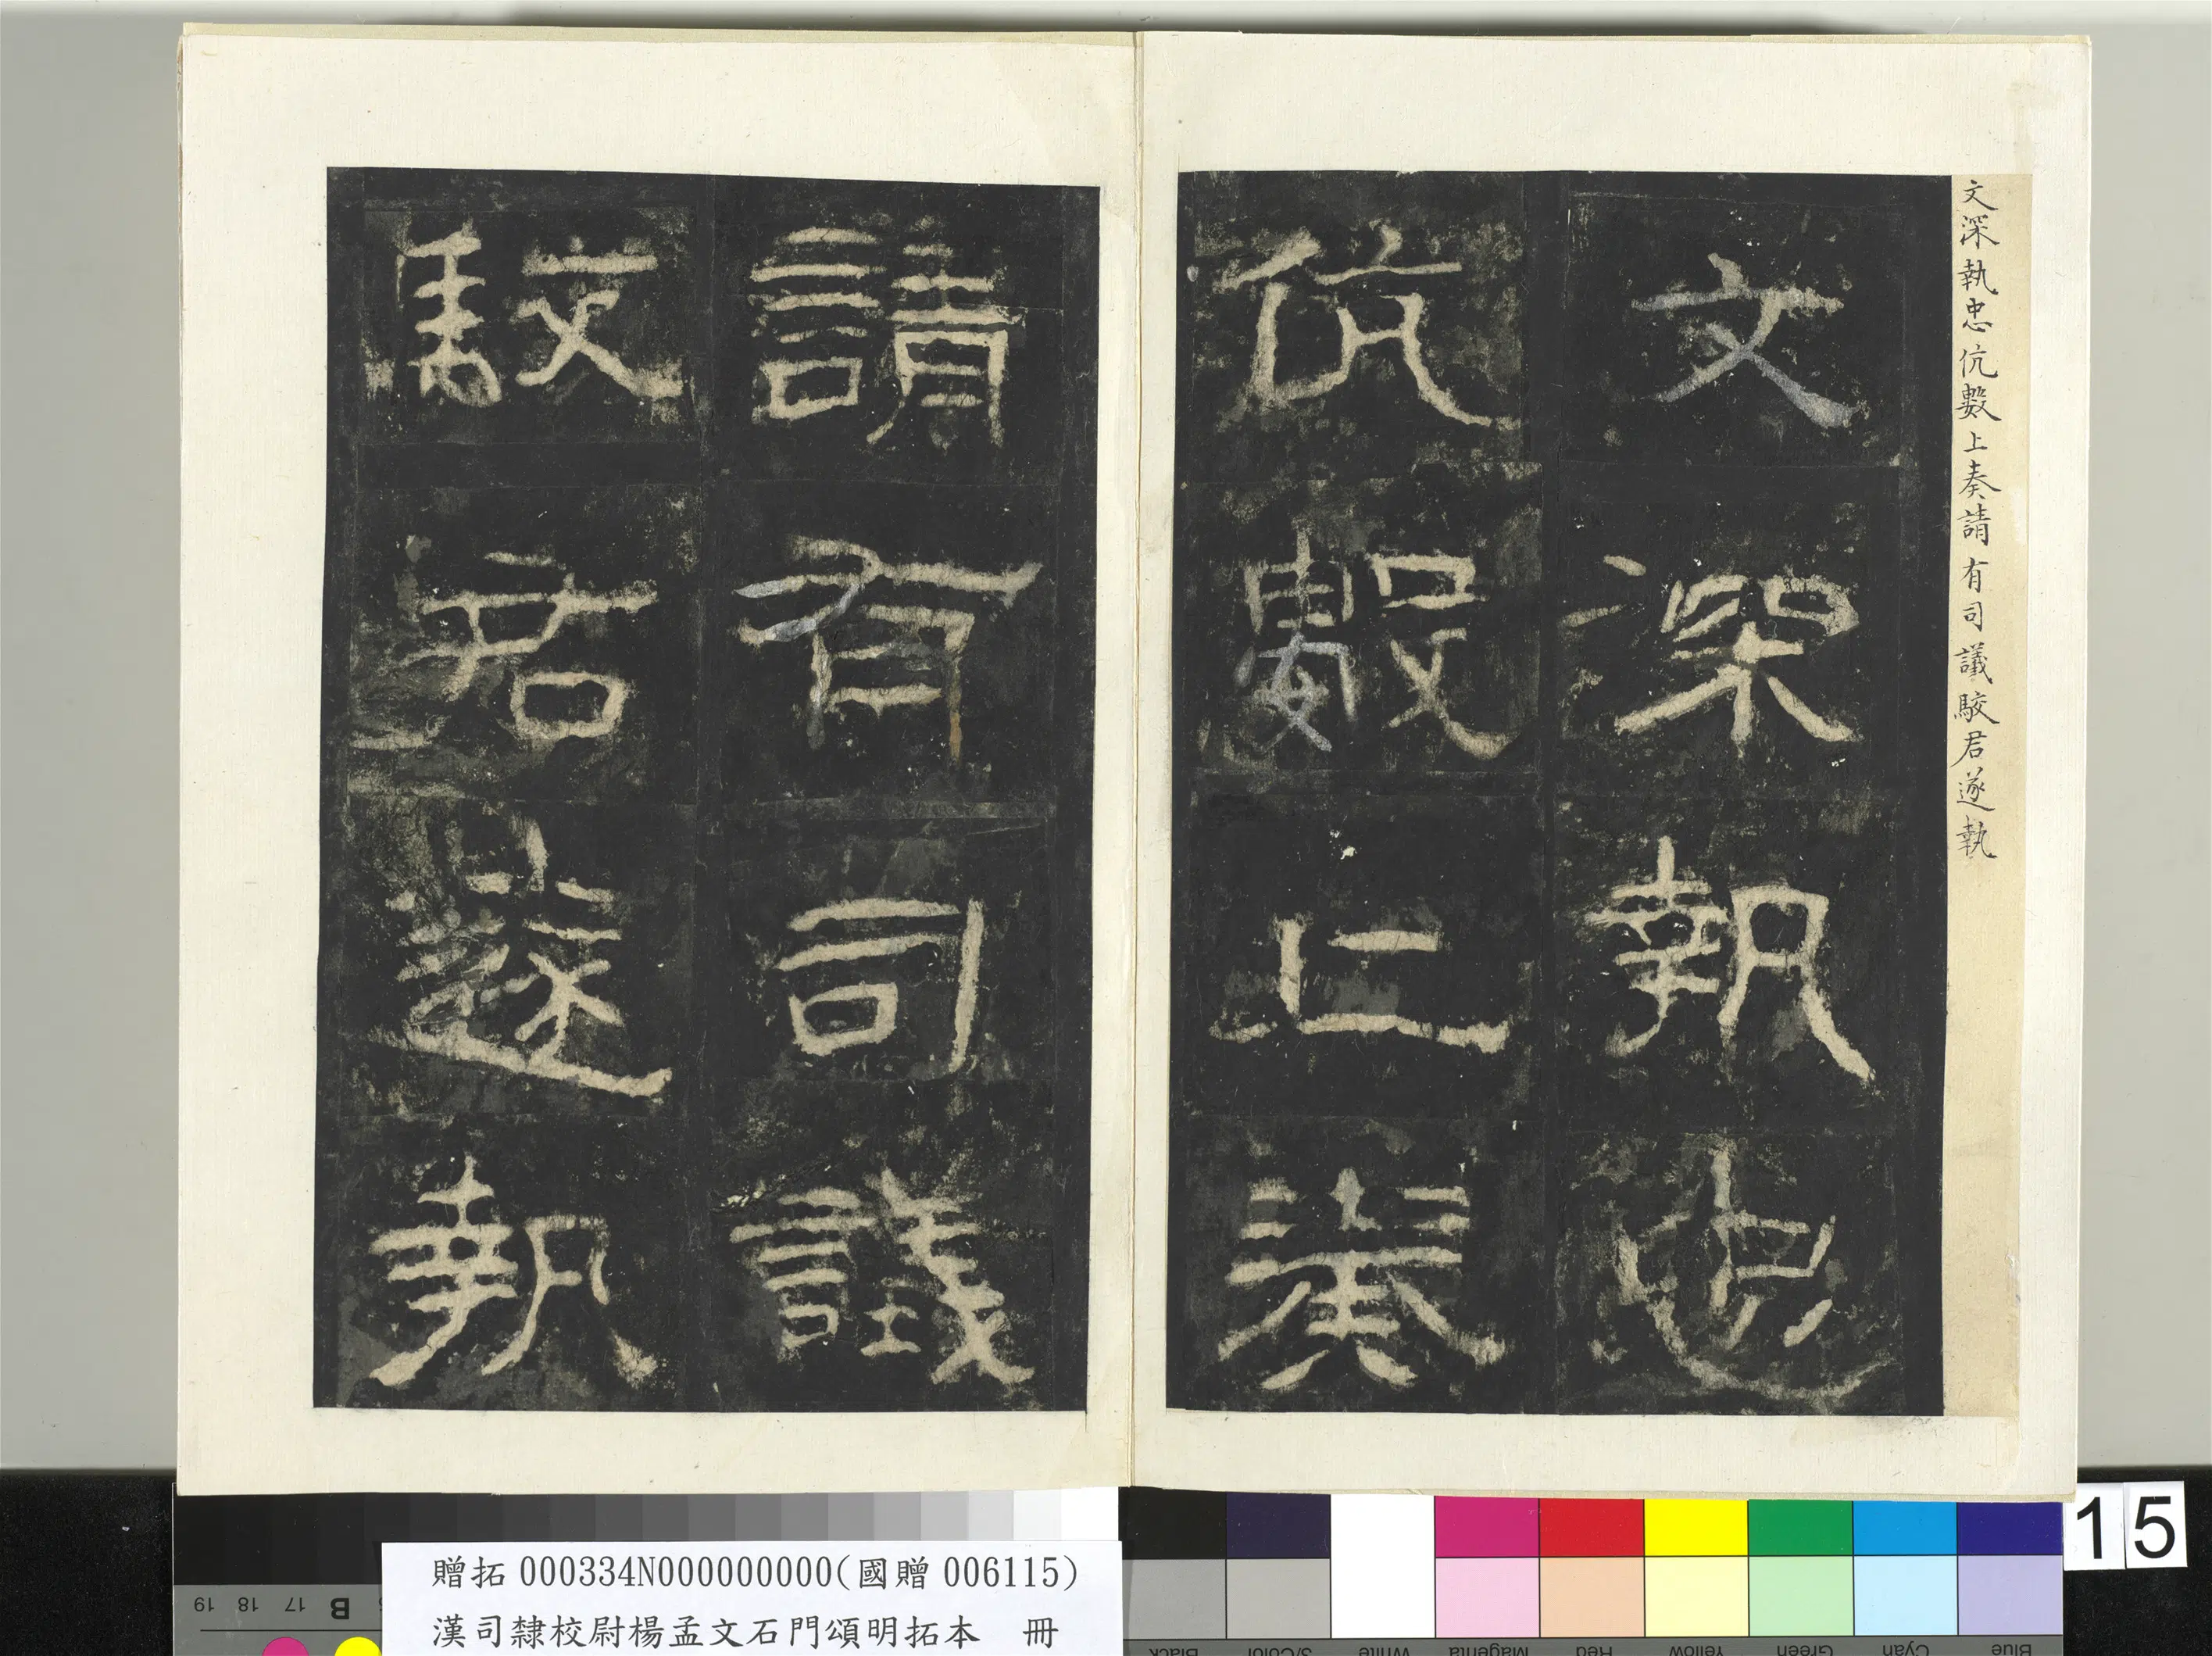 文深執忠伉數上奏請有司議駮君遂執
文深執忠
伉數上奏
請有司議
駮君遂執
15
贈拓000334N000000000(國贈006115)
漢司隸校尉楊孟文石門頌明拓本 冊
19 18 17 B
Black 3/Color White Magenta Red Yellow Green Cyan Blue